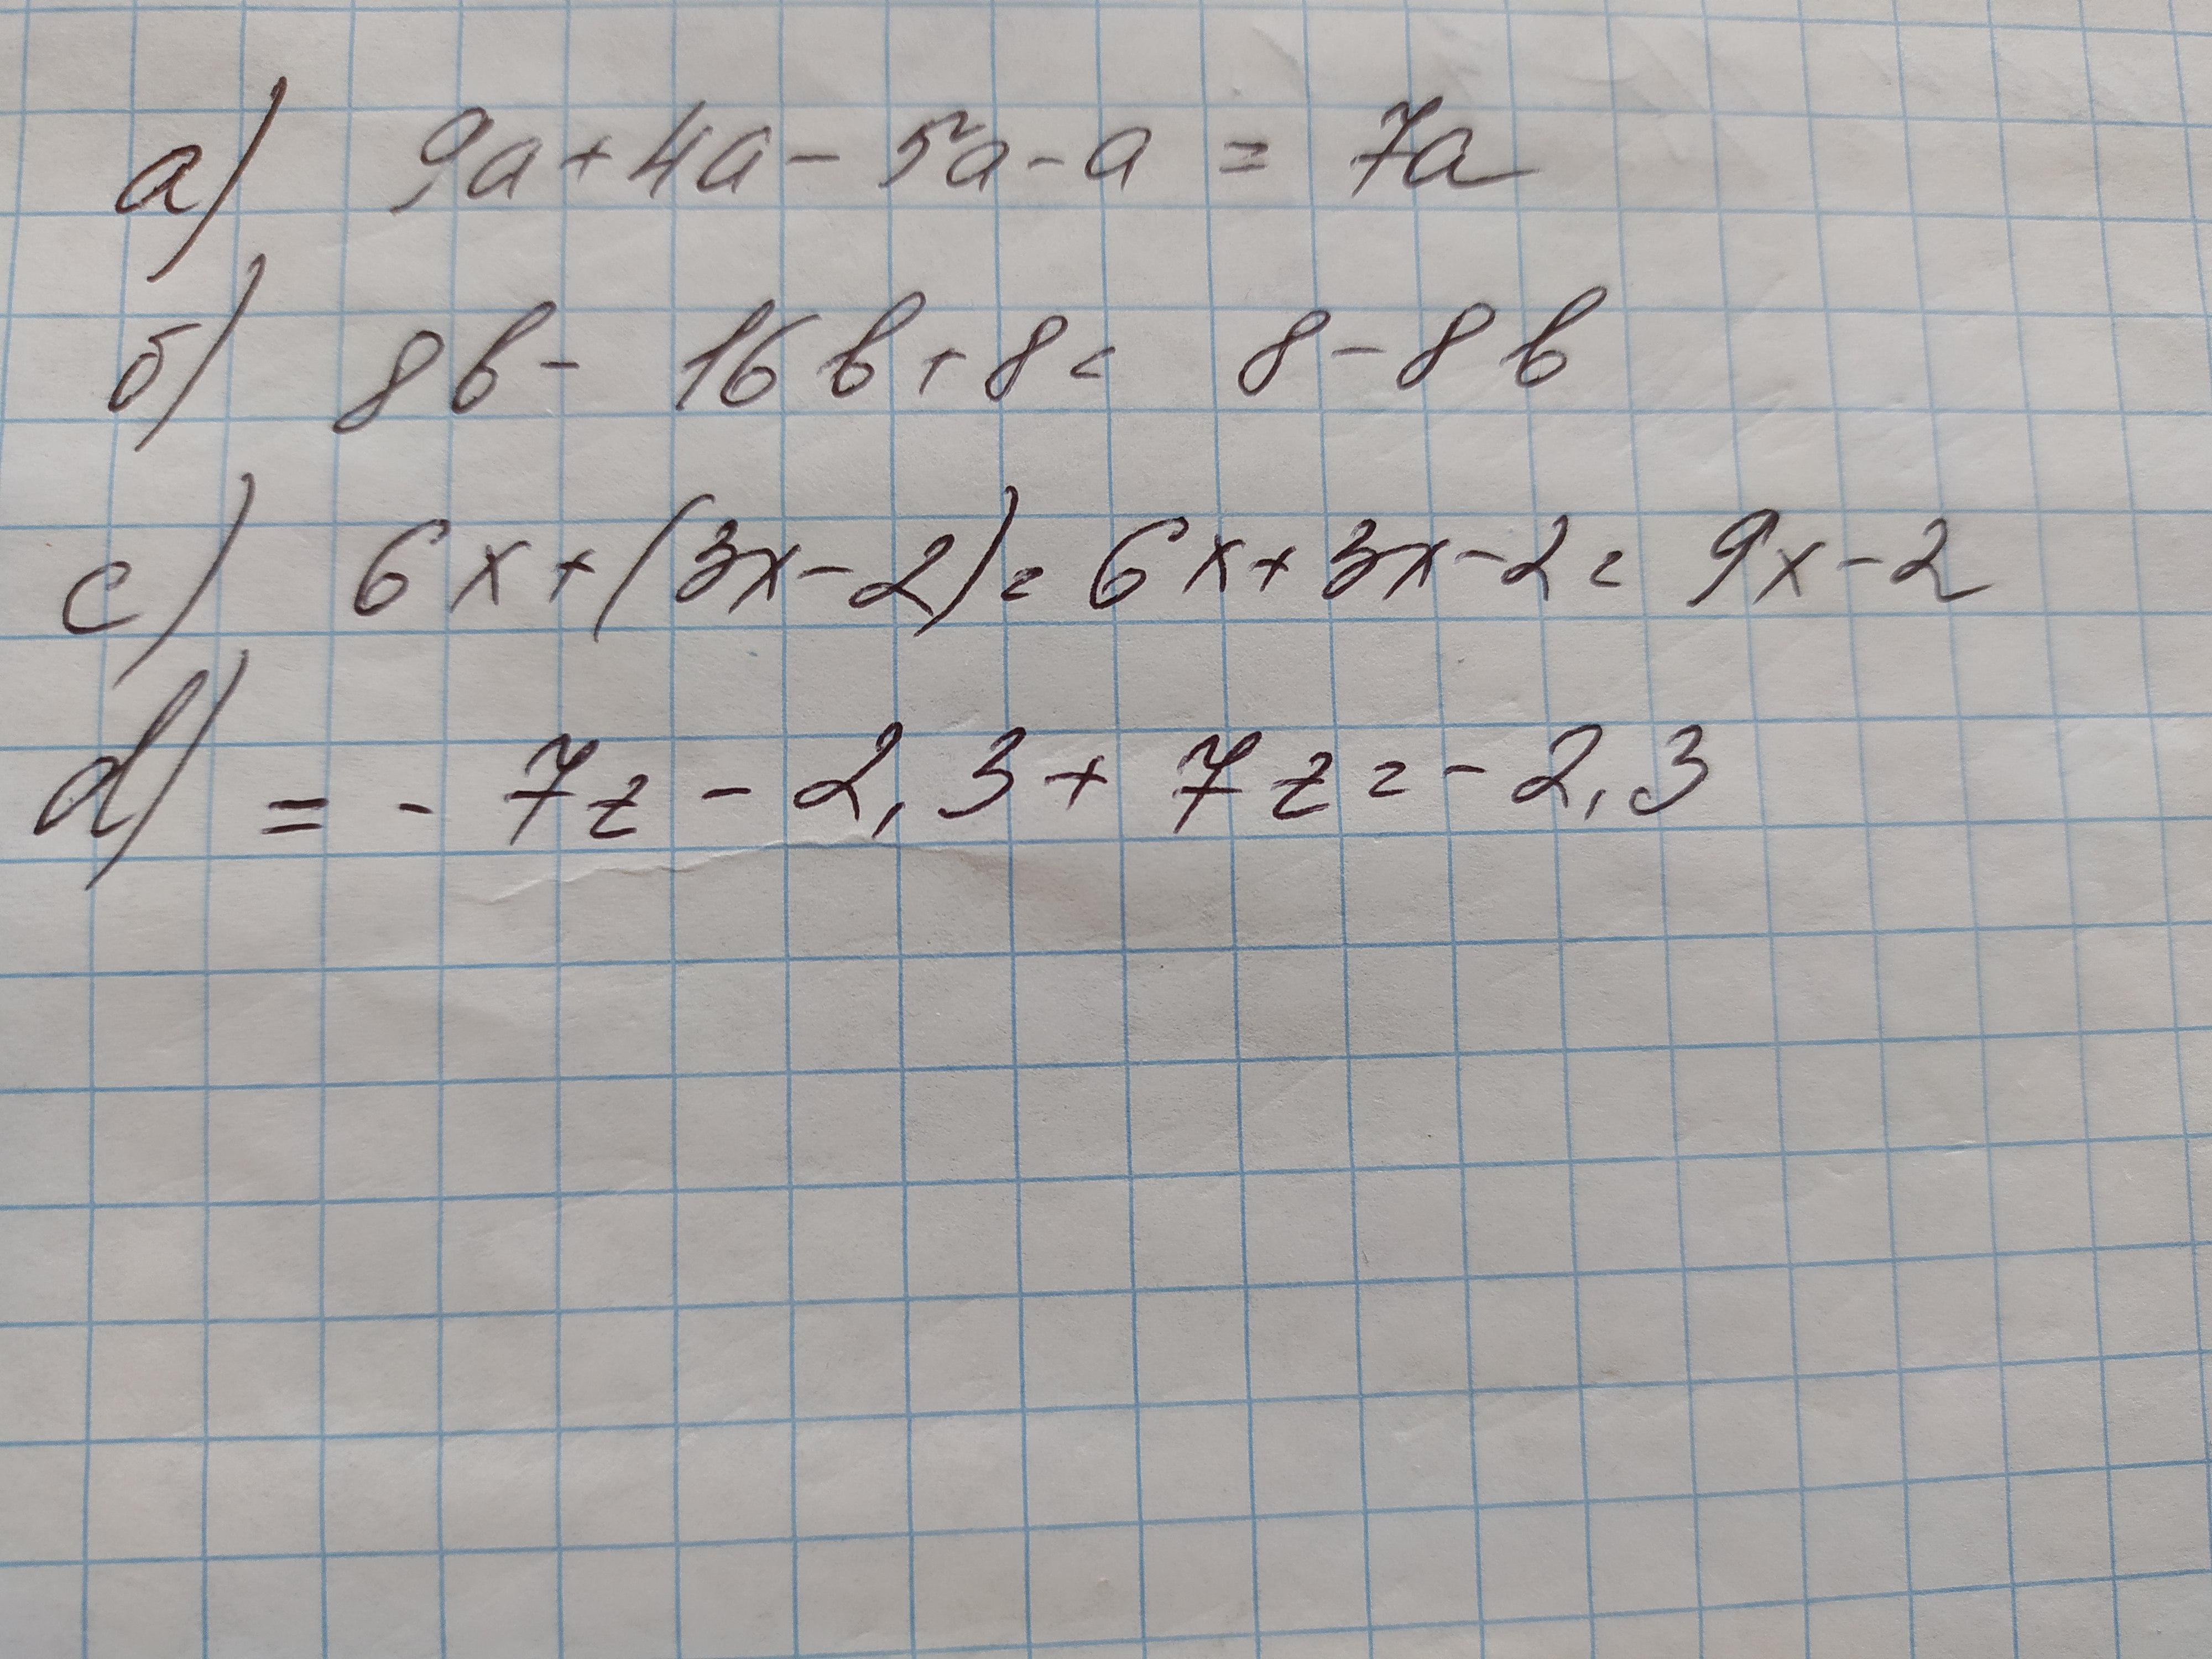 а) 9a+4a-5a-a = 7a
б) 8b- 16b+8= 8-8b
c) 6x+(3x-2)=6x+3x-2= 9x-2
d) =-7z-2,3+7z=-2,3